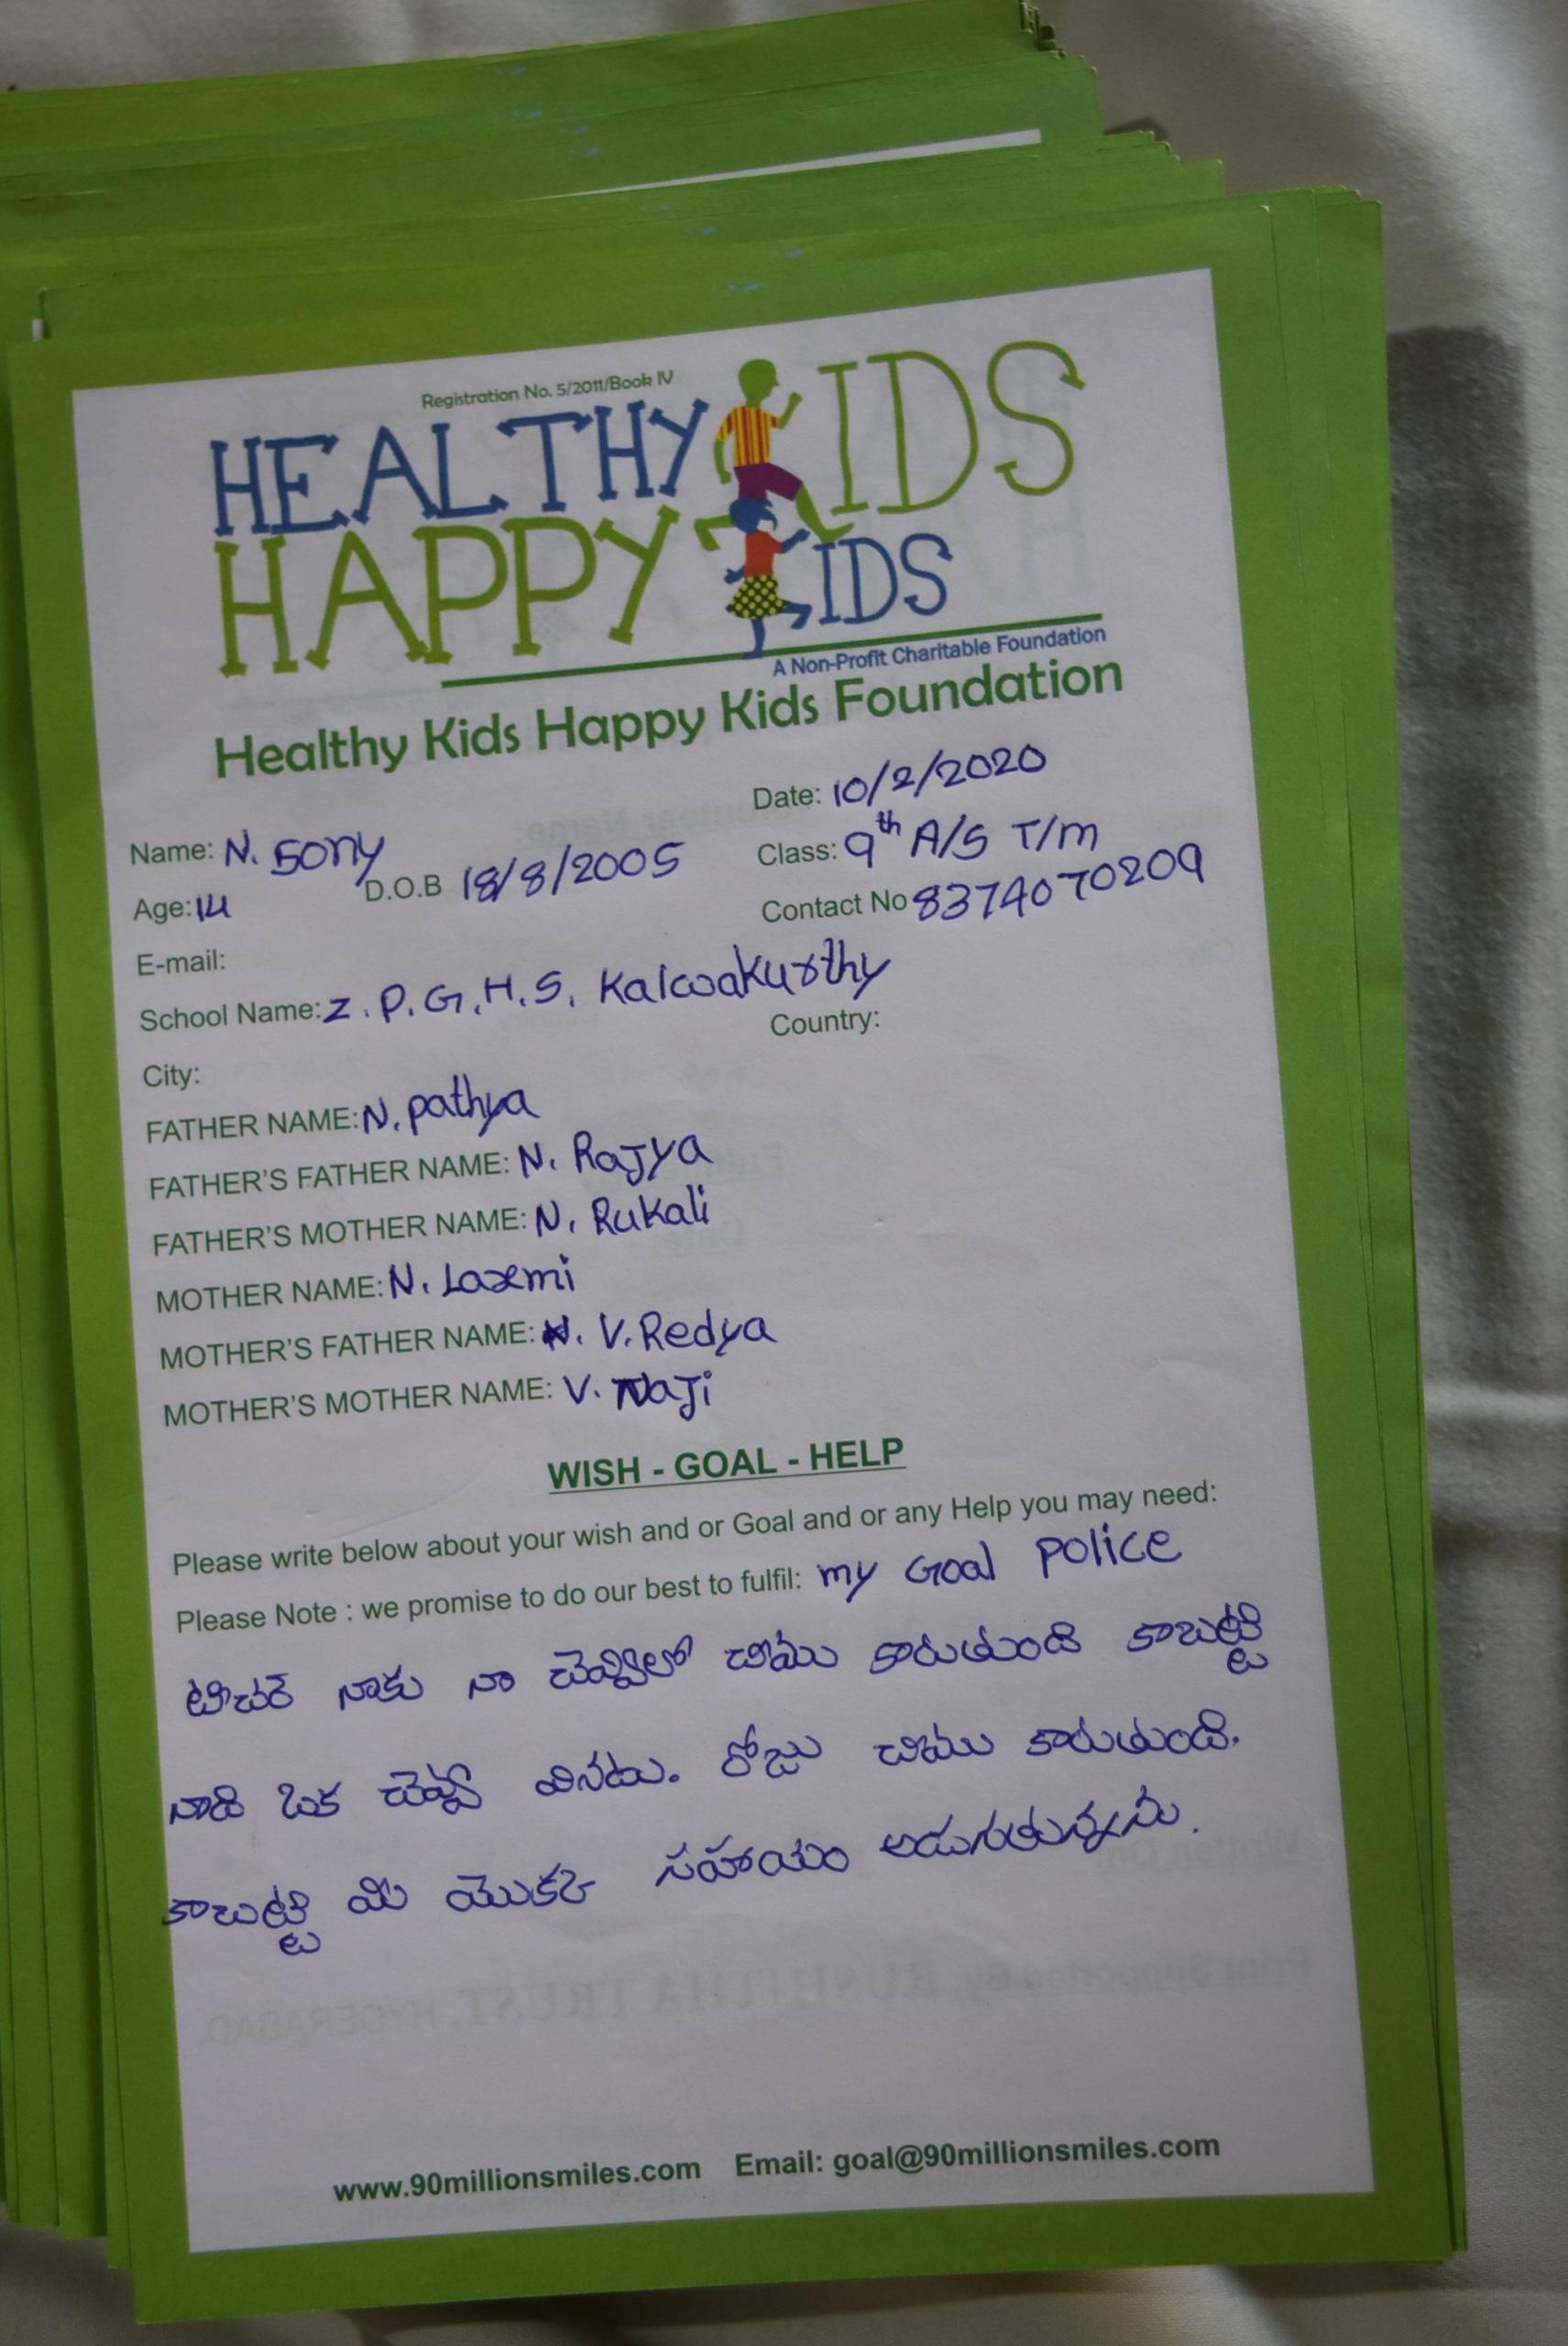 Registration No. 5/2011/Book IV
HEALTHY KIDS
HAPPY KIDS
A Non-Profit Charitable Foundation
Healthy Kids Happy Kids Foundation
Date: 10/2/2020
Name: N. Sony
Class: 9th A/S T/m
Age: 14 D.O.B 18/8/2005
Contact No 8374070209
E-mail:
School Name: Z. P. G. H. S. Kalwakurthy
City: Country:
FATHER NAME: N. pathya
FATHER'S FATHER NAME: N. Rajya
FATHER'S MOTHER NAME: N. Rukali
MOTHER NAME: N. Laxmi
MOTHER'S FATHER NAME: N. V. Redya
MOTHER'S MOTHER NAME: V. Naji
WISH - GOAL - HELP
Please write below about your wish and or Goal and or any Help you may need:
Please Note : we promise to do our best to fulfil: my Goal police
టిచర్ నాకు నా చెవ్విలో చిము కారుతుంది కాబట్టి
నాది ఒక చెవ్వి వినదు. రోజు చిము కారుతుంది.
కాబట్టి మి యొకక సహాయం అడుగుతున్నను.
www.90millionsmiles.com Email: goal@90millionsmiles.com